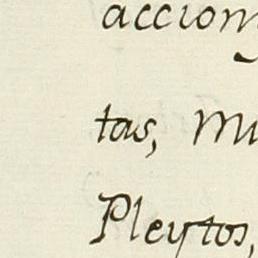 accion
tas, Mu
Pleytos,